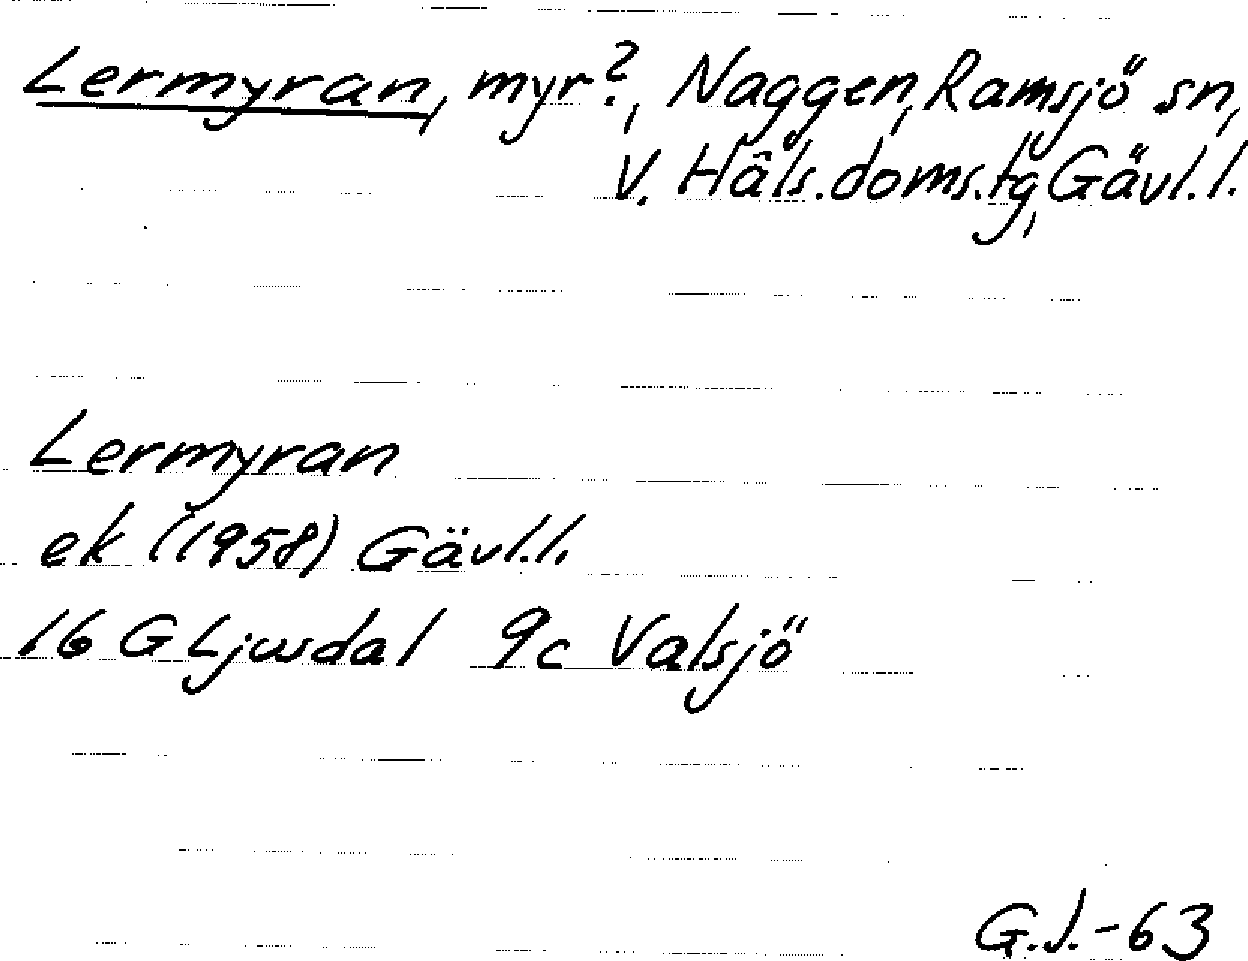 Lermyran, myr?, Naggen, Ramsjö sn,
V. Häls.doms.tg, Gävl.l.
Lermyran
ek (1958) Gävl.l.
16 G Ljusdal 9c Valsjö
G.J.-63